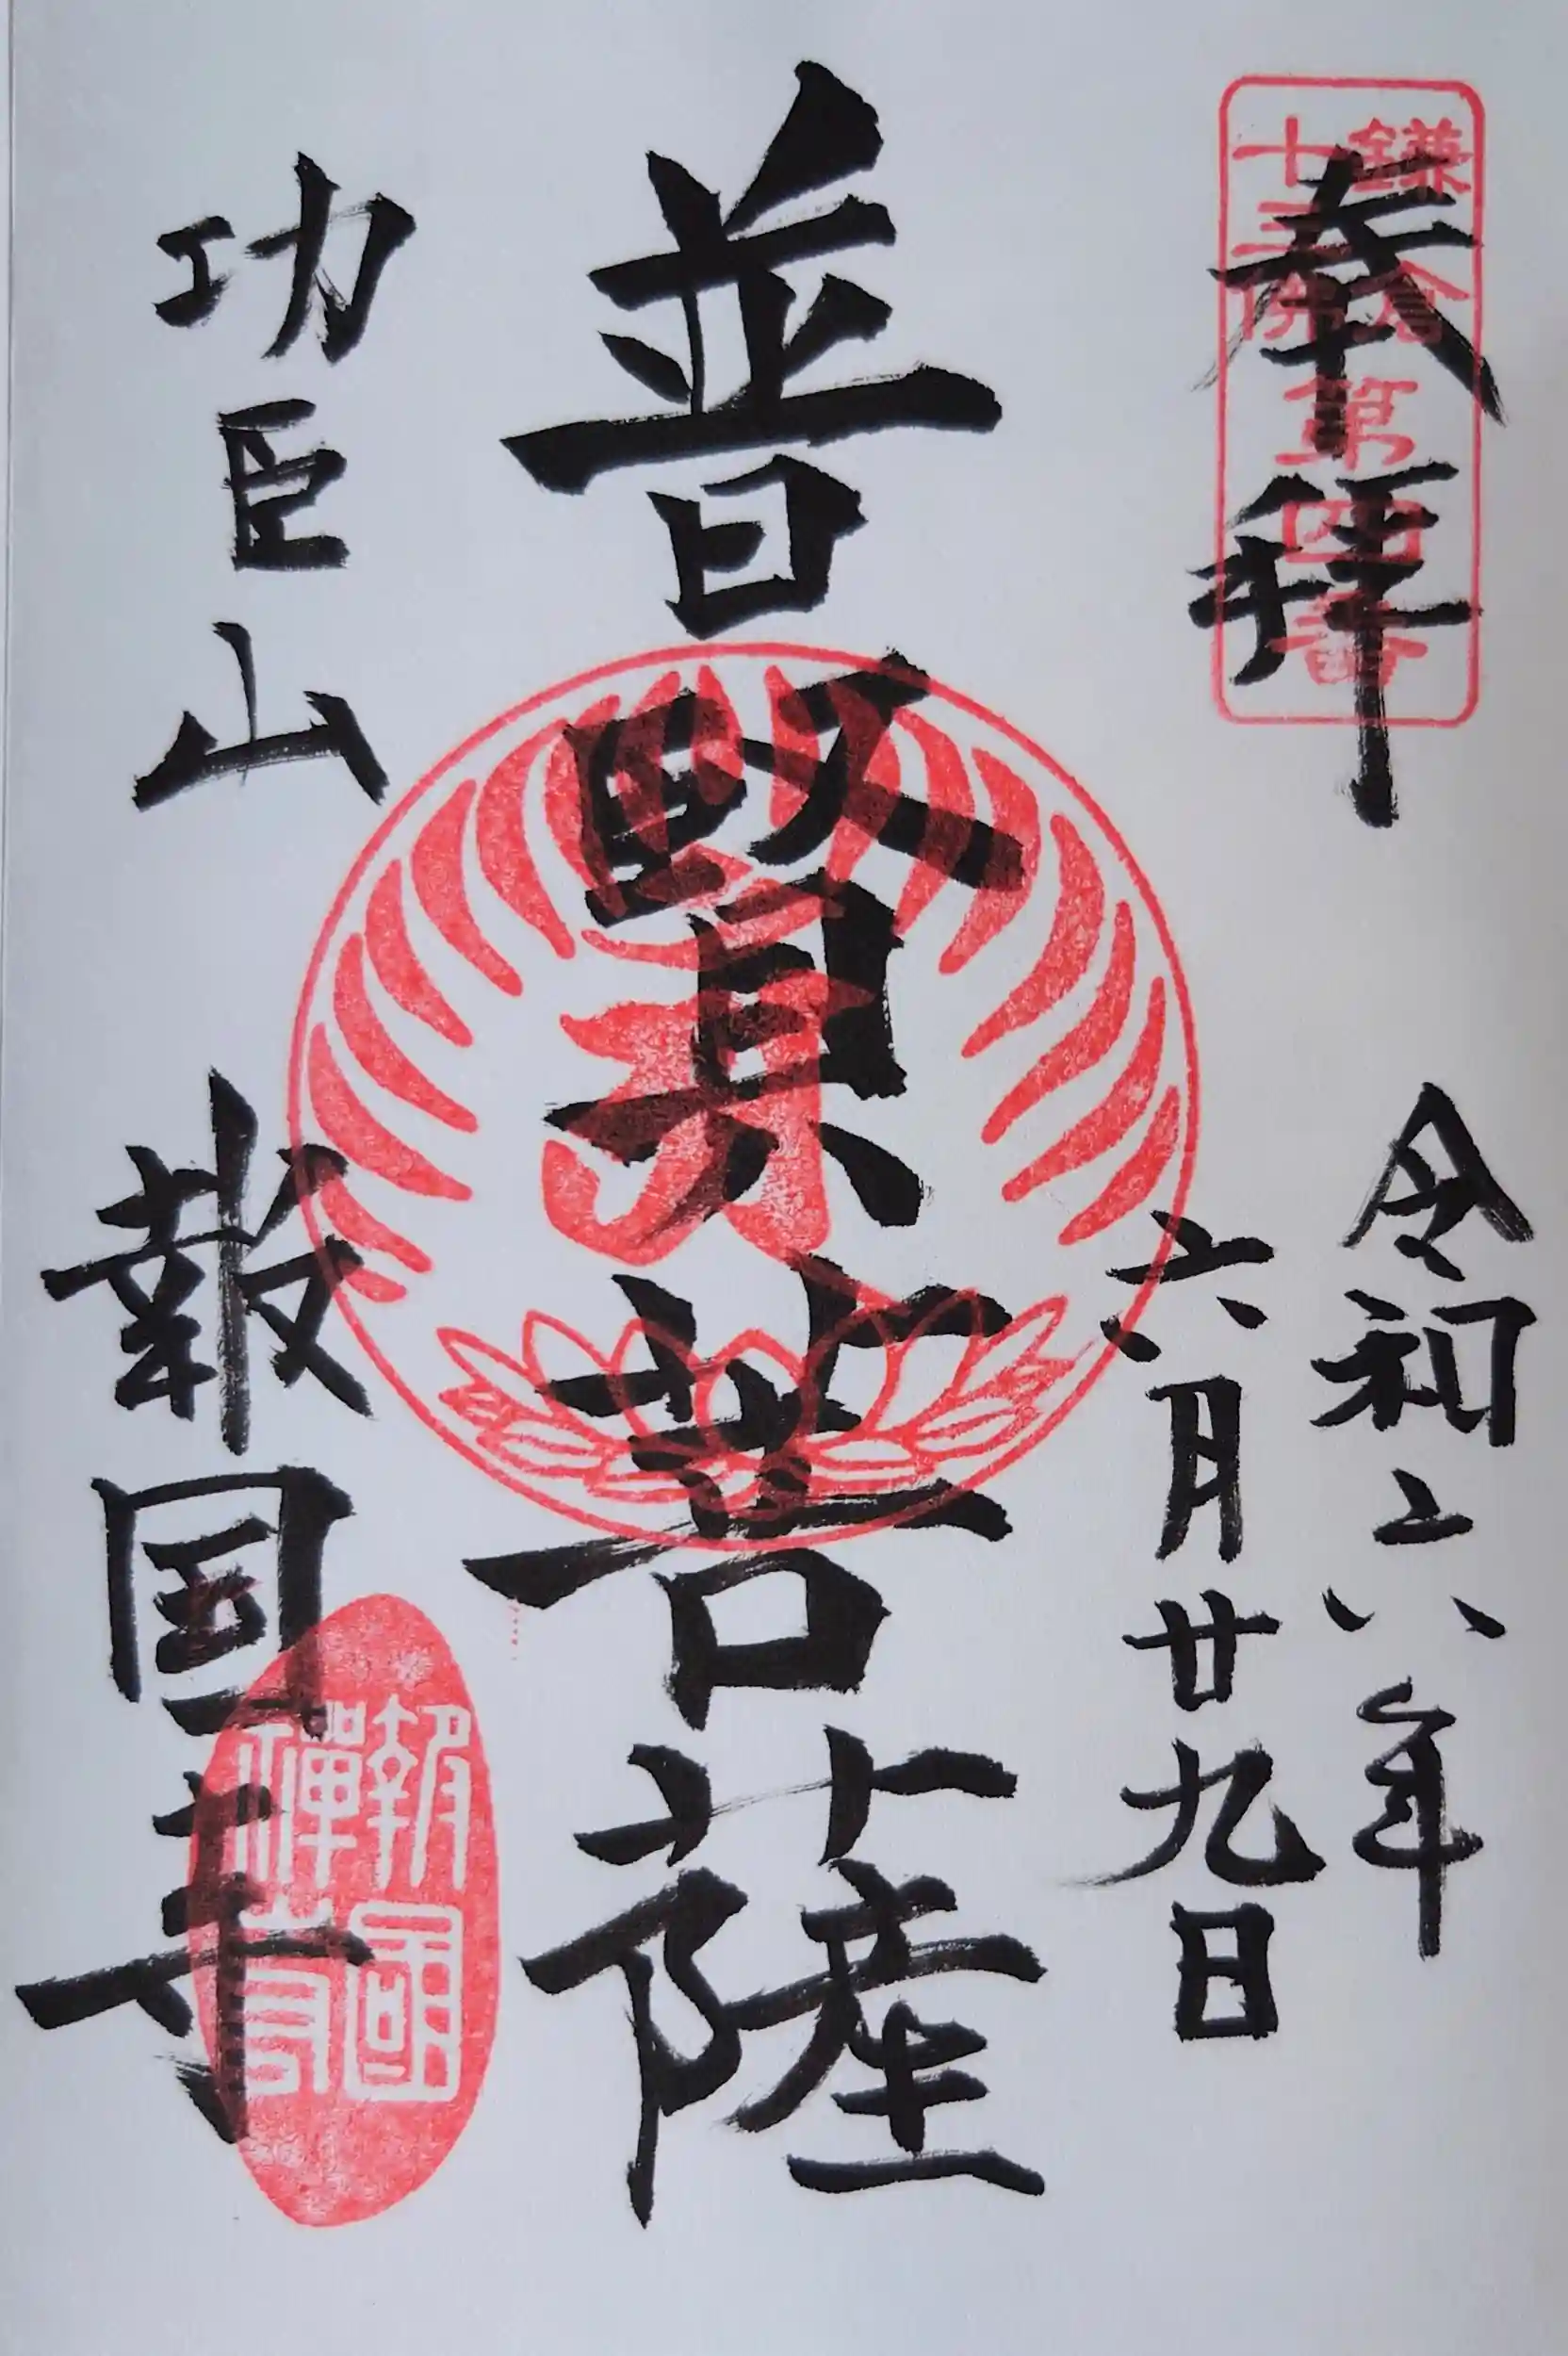 奉拝
鎌倉
十三佛
第四番
令和六年
六月廿九日
普賢菩薩
功臣山
報国寺
報國
禅寺